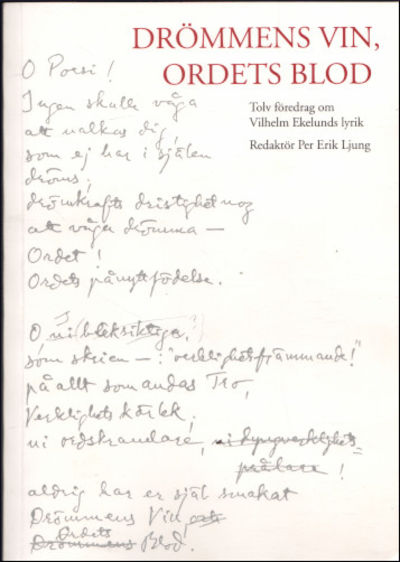 DRÖMMENS VIN,
ORDETS BLOD
Tolv föredrag om
Vilhelm Ekelunds lyrik
Redaktör Per Erik Ljung
O Poesi!
Ingen skulle våga
att nalkas dig,
som ej har i själen
dröms,
drömkrafts dristighet nog
att våga drömma —
Ordet!
Ordets pånyttfödelse.
O, ni bleksiktige,
som skrien —: "verklighetsfrämmande!"
på allt som andas Tro,
Verklighets kärlek,
ni ordskrandare,
pråLare!
aldrig har er själ smakat
Drömmens Vin,
Ordets
Drömmens Blod.